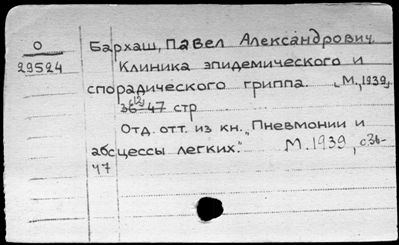 О
29524
Бархаш, Павел Александрович.
Клиника эпидемического и
спорадического гриппа. М., 1939,
12 стр
Отд. отт. из кн. „Пневмонии и
абсцессы легких." М. 1939, с. 36-
47